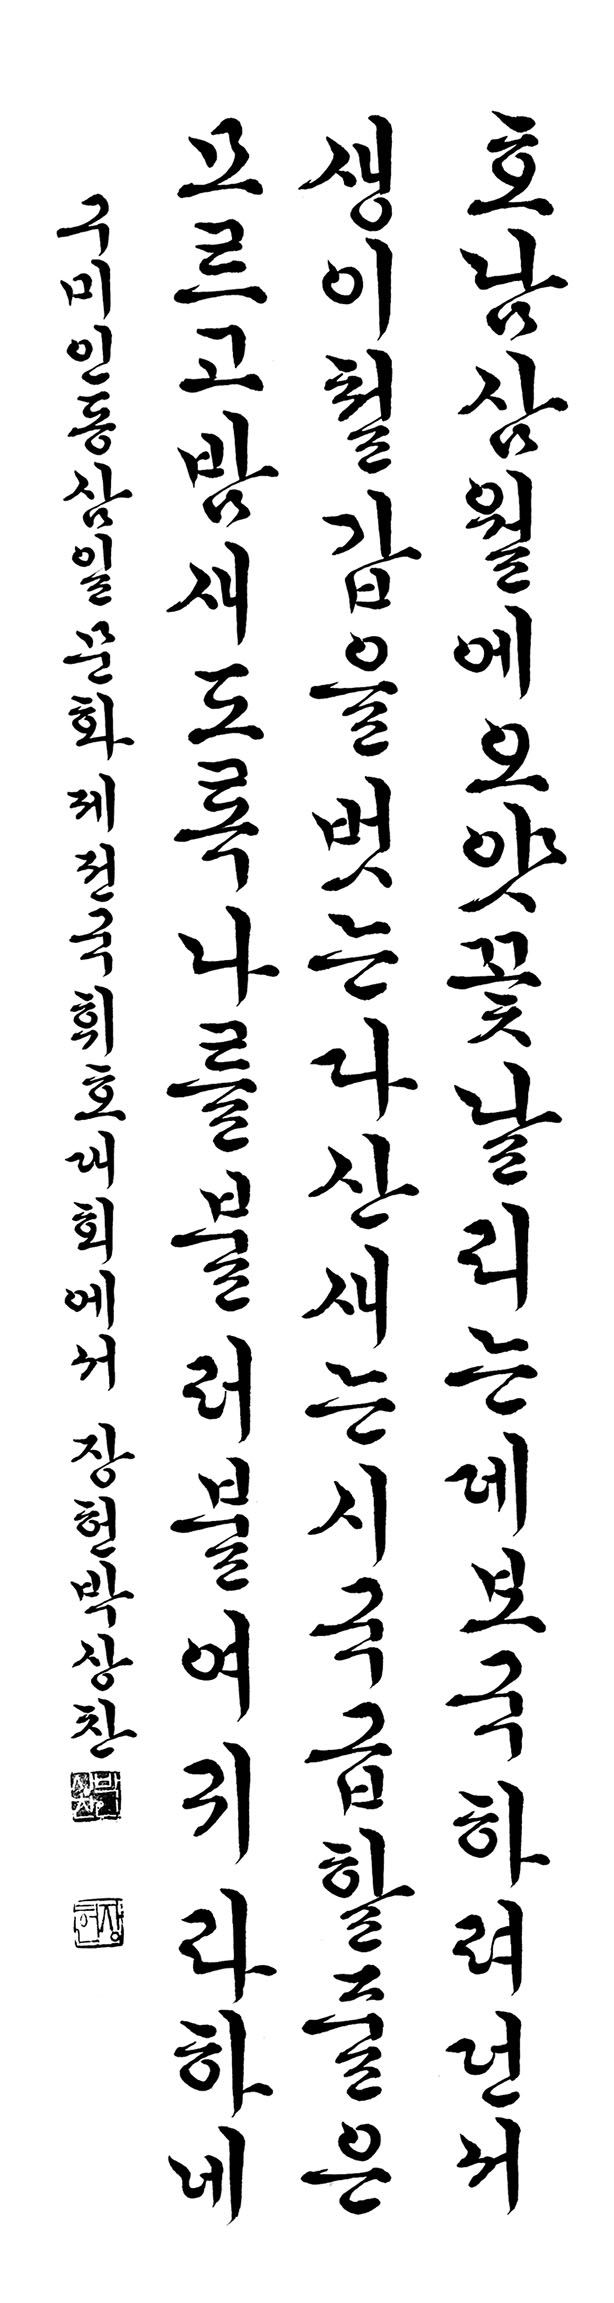 호남삼월에오얏꽃날리는데보국하려던서
생이철갑을벗는다산새는시국급할줄은
모르고밤새도록나를불러불여귀라하네
구미인동삼일문화제전국휘호대회에서 장현박상찬
박상찬
장현